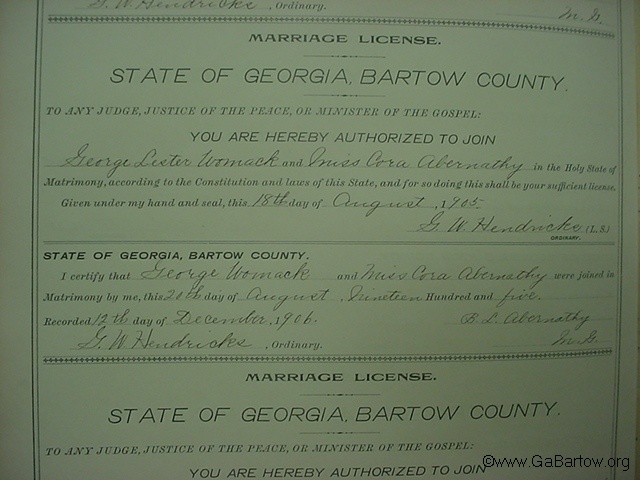 G. W. Hendricks, Ordinary.
M. G.
MARRIAGE LICENSE.
STATE OF GEORGIA, BARTOW COUNTY.
TO ANY JUDGE, JUSTICE OF THE PEACE, OR MINISTER OF THE GOSPEL:
YOU ARE HEREBY AUTHORIZED TO JOIN
George Lester Womack and Miss Cora Abernathy in the Holy State of
Matrimony, according to the Constitution and laws of this State, and for so doing this shall be your sufficient license.
Given under my hand and seal, this 18th day of August, 1905.
G. W. Hendricks (L. S.)
ORDINARY.
STATE OF GEORGIA, BARTOW COUNTY.
I certify that George Womack and Miss Cora Abernathy were joined in
Matrimony by me, this 20th day of August, Nineteen Hundred and five.
Recorded, 12th day of December, 1906. B. L. Abernathy
G. W. Hendricks, Ordinary. M. G.
MARRIAGE LICENSE.
STATE OF GEORGIA, BARTOW COUNTY.
TO ANY JUDGE, JUSTICE OF THE PEACE, OR MINISTER OF THE GOSPEL:
YOU ARE HEREBY AUTHORIZED TO JOIN
©www.GaBartow.org